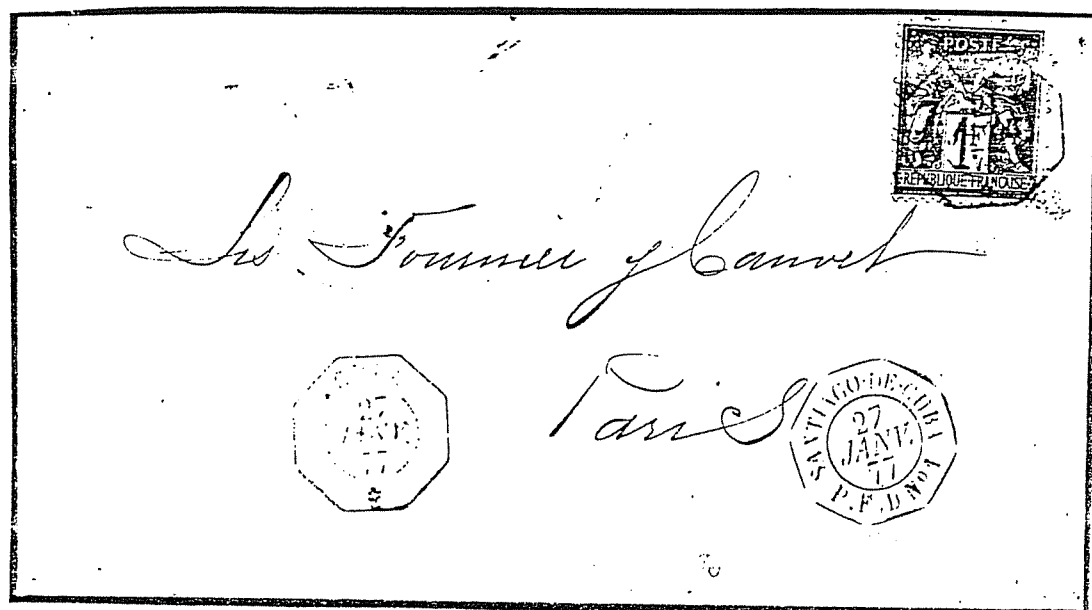 POSTE
1F
REPUBLIQUE FRANCAISE
Srs Fournier y Cauvet
Paris
27
JANV.
77
SANTIAGO-DE-CUBA
27
JANV.
77
P.F.D No1